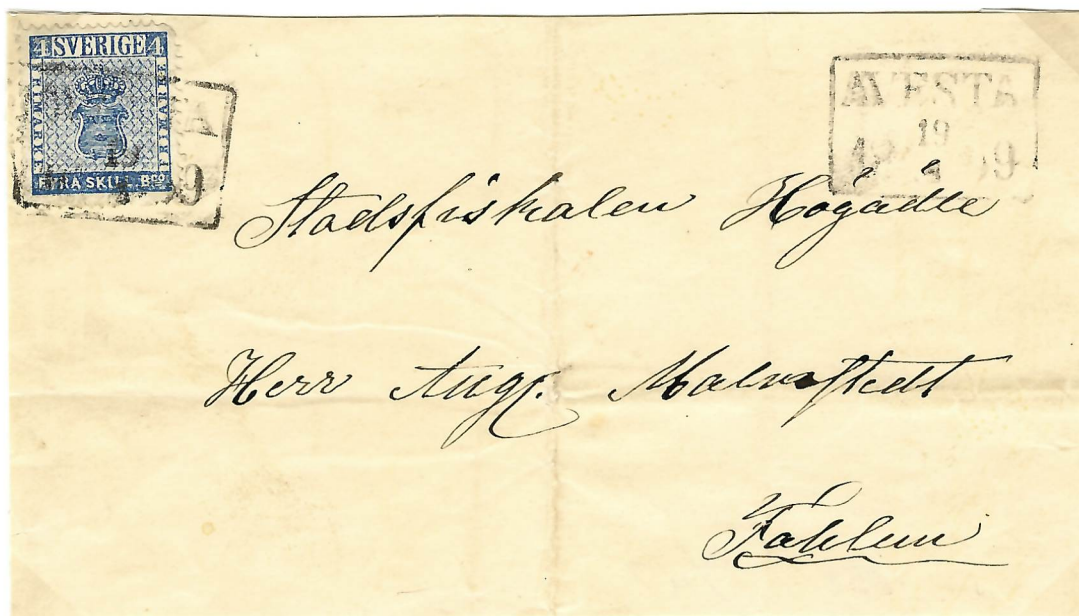 4 SVERIGE 4
FRIMÄRKE
FRIMÄRKE
FYRA SKILL. Bco
19
AVESTA
19
4 1859
Stadsfiskalen Högädle
Herr Aug. Malmstedt
Fahlun